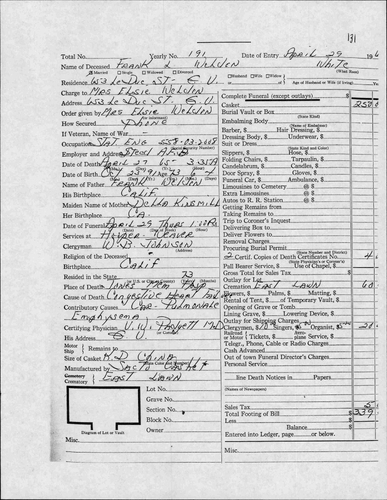 131
Total No. Yearly No. 191 Date of Entry April 29 196
Name of Deceased Frank L Welden White
Married Single Widowed Divorced Husband Wife Widow Age of Husband or Wife (if living)
Residence 653 Le Duc St - G.V.
Charge to Mrs Elsie Welden
Address 653 Le Duc St. G.V.
Order given by Mrs Elsie Welden
How Secured Phone
If Veteran, Name of War
Occupation
Employer and Address
Date of Death April 27
Date of Birth
Name of Father Frank Welden
His Birthplace Calif
Maiden Name of Mother Della Kinsmill
Her Birthplace Ca.
Date of Funeral April 29 Thurs
Services at Hooper Weaver
Clergyman W.B. Johnsen
Religion of the Deceased
Birthplace Calif
Resided in the State 73
Place of Death
Cause of Death Congestive Heart Failure
Contributory Causes Cor-Pulmonale
Emphysema
Certifying Physician
His Address G.V.
Motor Ship Remains to
Size of Casket
Manufactured by Sacto Casket
Cemetery Crematory East Lawn
Lot No.
Grave No.
Section No.
Block No.
Owner
Diagram of Lot or Vault
Misc.
Complete Funeral (except outlays) $
Casket
Burial Vault or Box
(State Kind)
Embalming Body
(Name of Embalmer)
Barber, $ Hair Dressing, $
Dressing Body, $ Underwear, $
Suit or Dress
(State Kind and Color)
Slippers, $ Hose, $
Folding Chairs, $ Tarpaulin, $
Candelabrum, $ Candles, $
Door Spray, $ Gloves, $
Funeral Car, $ Ambulance, $
Limousines to Cemetery @ $
Extra Limousines @ $
Autos to R. R. Station @ $
Getting Remains from
Taking Remains to
Trip to Coroner's Inquest
Delivering Box to
Deliver Flowers to
Removal Charges
Procuring Burial Permit
2 Certif. Copies of Death Certificates No. 4
Pall Bearer Service, $ Use of Chapel, $
Gross Total for Sales Tax $
Outlay for Lot
Cremation East Lawn 60
Flowers, $ Palms, $ Matting, $
Rental of Tent, $ of Temporary Vault, $
Opening Grave or Tomb
Lining Grave, $ Lowering Device, $
Outlay for Shipping Charges
Clergymen, $ Singers, $ Organist, $
Tickets, $ plane Service, $
Telegr., Phone, Cable or Radio Charges
Cash Advanced
Out of town Funeral Director's Charges
Personal Service
line Death Notices in Papers
(Names of Newspapers)
Sales Tax
Total Footing of Bill $ 339
Less
Balance $
Entered into Ledger, page or below.
Misc.